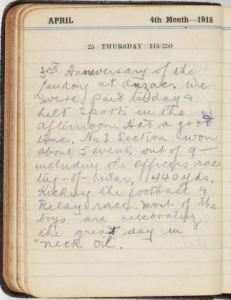 APRIL 4th Month—1918
25 THURSDAY 115-250
3rd Anniversary of the
landing at Anzac. We
were paid today &
held sports in the
afternoon. Had a good
time, No 1 Section won
about 5 events out of 9 -
including the Officers race
tug-of-war, 440 yds,
Kicking the football &
Relay race. Most of the
boys are celebrating
the great day in
"neck oil".